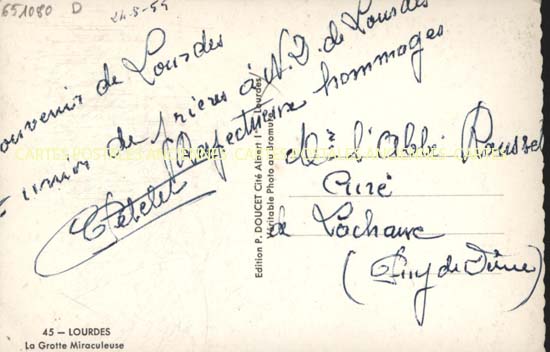 651080 D
24-8-59
Souvenir de Lourdes
Union de prières à N.D. de Lourdes
Respectueux hommages
Mr l'Abbé Roussel
Curé
de Lachaux
(Puy de Dôme)
Edition P. DOUCET Cité Albert 1er Lourdes
Véritable Photo au Bromure
CARTES POSTALES ANCIENNES
45 — LOURDES
La Grotte Miraculeuse